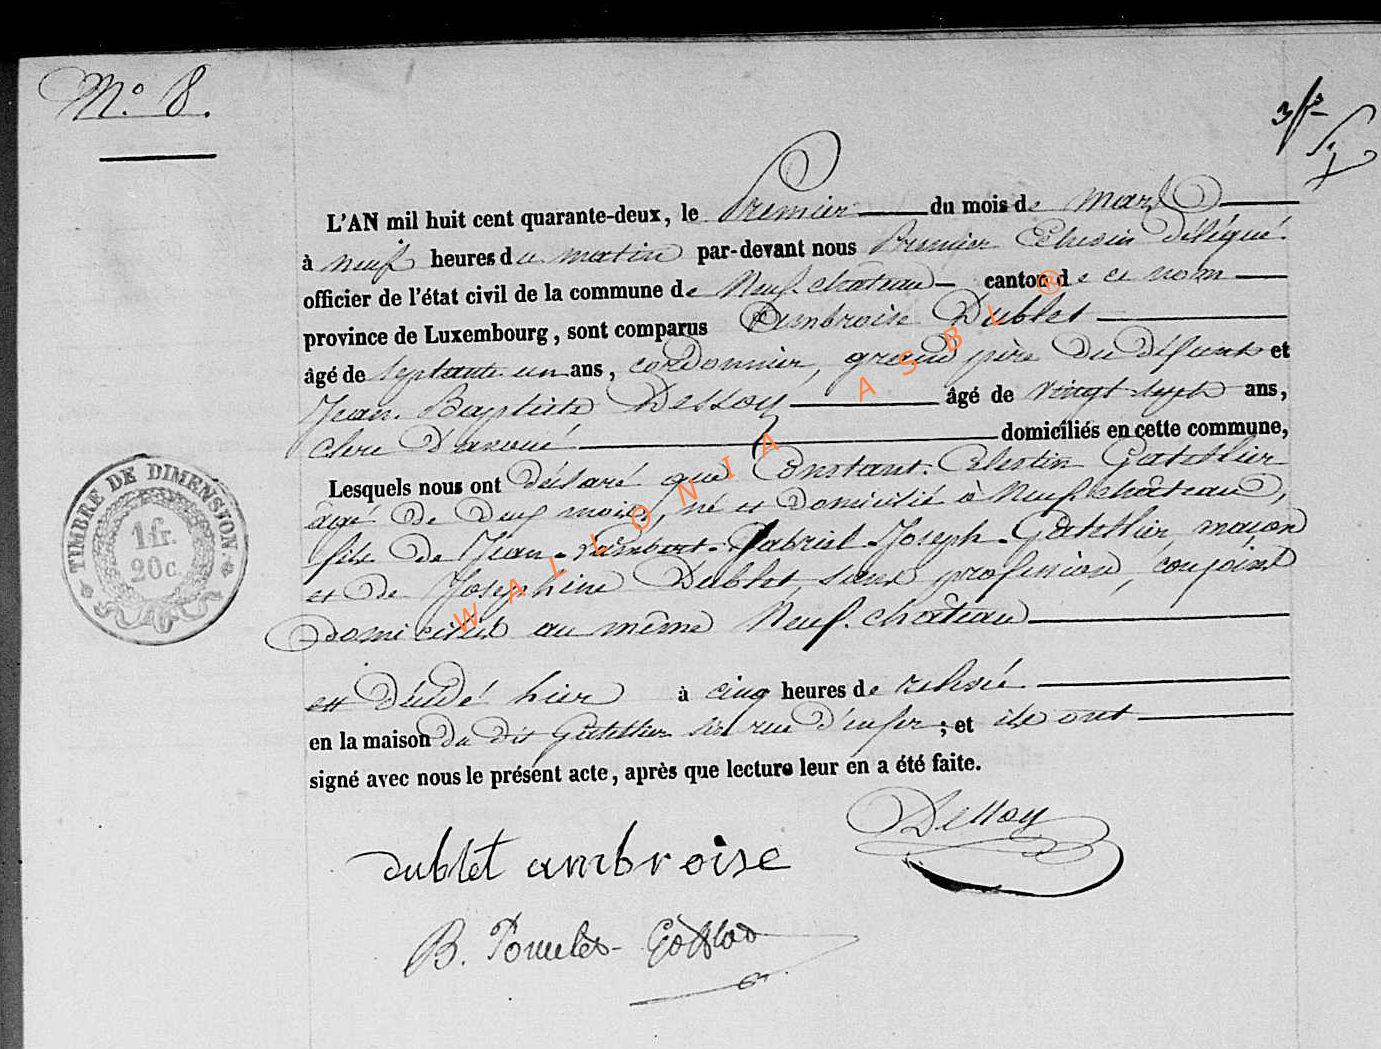 N.º 8.
L'AN mil huit cent quarante-deux, le Premier du mois de Mars
à neuf heures du matin par-devant nous Premier Echevin délégué
officier de l'état civil de la commune de Neufchateau canton de ce nom
province de Luxembourg, sont comparus Ambroise Dublet
âgé de septante un ans, cordonnier, grand père du défunt et
Jean-Baptiste Dessoy âgé de vingt sept ans,
clerc d'avoué domiciliés en cette commune,
Lesquels nous ont déclaré que Constant-Célestin Gatellier
âgé de neuf mois, né et domicilié à Neufchâteau,
fils de Jean-Lambert-Gabriel-Joseph-Gatellier, maçon
et de Josephine Dublet, sans profession, conjoints
domiciliés au même Neufchâteau
est décédé hier à cinq heures de relevée
en la maison du dit Gatellier sise rue d'enfer; et ils ont
signé avec nous le présent acte, après que lecture leur en a été faite.
TIMBRE DE DIMENSION.
1 fr.
20 c.
Dessoy
dublet ambroise
B.
WALLONIA ASBL ®